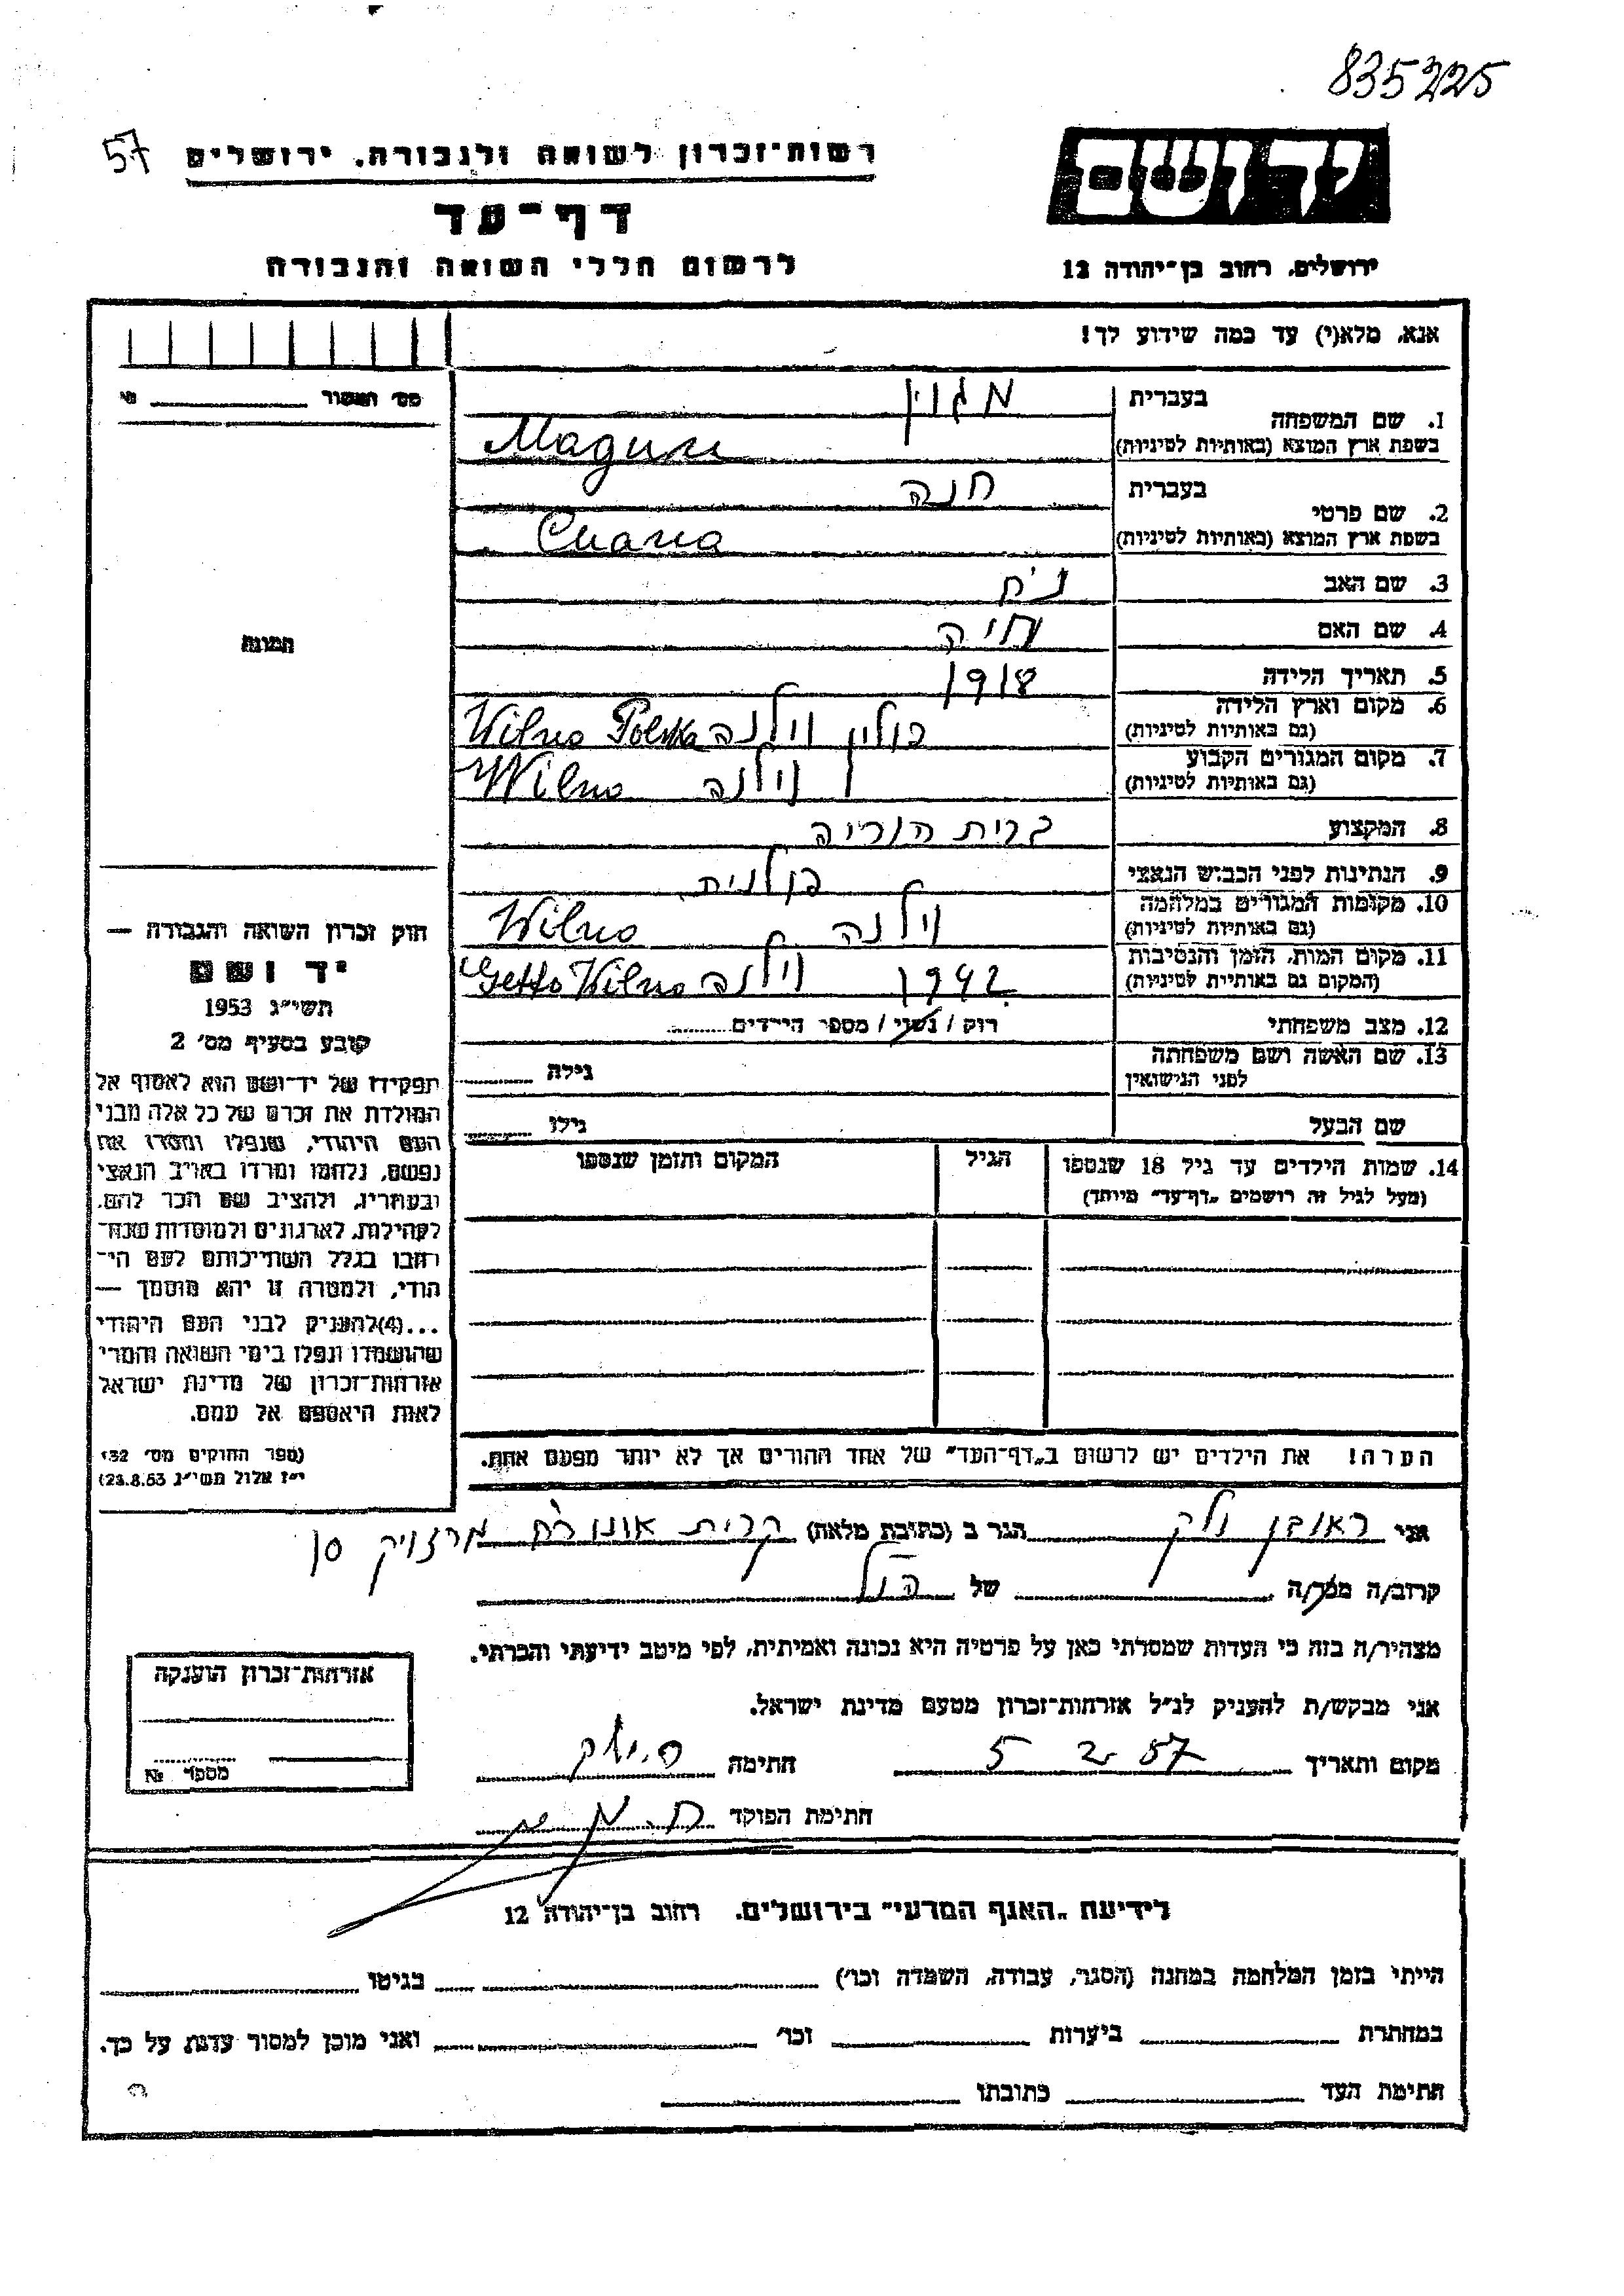 835225
57
רשות־זכרון לשואה ולגבורה, ירושלים
יד ושם
דף־עד
לרשום חללי השואה והגבורה
ירושלים, רחוב בן־יהודה 12
אנא, מלא(י) עד כמה שידוע לך!
מס׳
1. שם המשפחה
בעברית
מגון
בשפת ארץ המוצא (באותיות לטיניות)
Magun
2. שם פרטי
בעברית
חנה
בשפת ארץ המוצא (באותיות לטיניות)
Chana
3. שם האב
נח
4. שם האם
חיה
5. תאריך הלידה
1918
6. מקום וארץ הלידה
(גם באותיות לטיניות)
פולין וילנה Wilno Polska
7. מקום המגורים הקבוע
(גם באותיות לטיניות)
וילנה Wilno
8. המקצוע
בבית הוריה
9. הנתינות לפני הכבוש הנאצי
פולנית
10. מקומות המגורים במלחמה
(גם באותיות לטיניות)
וילנה Wilno
11. מקום המות, הזמן והנסיבות
(המקום גם באותיות לטיניות)
1942 וילנה Getto Wilno
12. מצב משפחתי
רוק / נשוי / מספר הילדים
13. שם האשה ושם משפחתה
לפני הנישואין
גילה
שם הבעל
גילו
14. שמות הילדים עד גיל 18 שנספו
(מעל לגיל זה רושמים „דף־עד" מיוחד)
הגיל
המקום והזמן שנספו
תמונה
חוק זכרון השואה והגבורה —
יד ושם
תשי״ג 1953
קובע בסעיף מס׳ 2
תפקידו של יד־ושם הוא לאסוף אל
המולדת את זכרם של כל אלה מבני
העם היהודי, שנפלו ומסרו את
נפשם, נלחמו ומרדו באויב הנאצי
ובעוזריו, ולהציב שם וזכר להם,
לקהילות, לארגונים ולמוסדות שנח־
רבו בגלל השתייכותם לעם הי־
הודי, ולמטרה זו יהא מוסמך —
...(4) להעניק לבני העם היהודי
שהושמדו ונפלו בימי השואה והמרי
אזרחות־זכרון של מדינת ישראל
לאות היאספם אל עמם.
(ספר החוקים מס׳ 132
י״ז אלול תשי״ג 23.8.53)
הערה! את הילדים יש לרשום ב„דף־העד" של אחד ההורים אך לא יותר מפעם אחת.
אני ראובן ולק הגר ב (כתובת מלאה) קרית אונו
קרוב/ה מכר/ה של הנ״ל
מצהיר/ה בזה כי העדות שמסרתי כאן על פרטיה היא נכונה ואמיתית, לפי מיטב ידיעתי והכרתי.
אני מבקש/ת להעניק לנ״ל אזרחות־זכרון מטעם מדינת ישראל.
מקום ותאריך 5 2 57 חתימה
חתימת הפוקד
אזרחות־זכרון הוענקה
מספר №
לידיעת „האגף המדעי" בירושלים, רחוב בן־יהודה 12
הייתי בזמן המלחמה במחנה (הסגר, עבודה, השמדה וכו׳) בגיטו
במחתרת ביערות וכו׳ ואני מוכן למסור עדות על כך.
חתימת העד כתובתו